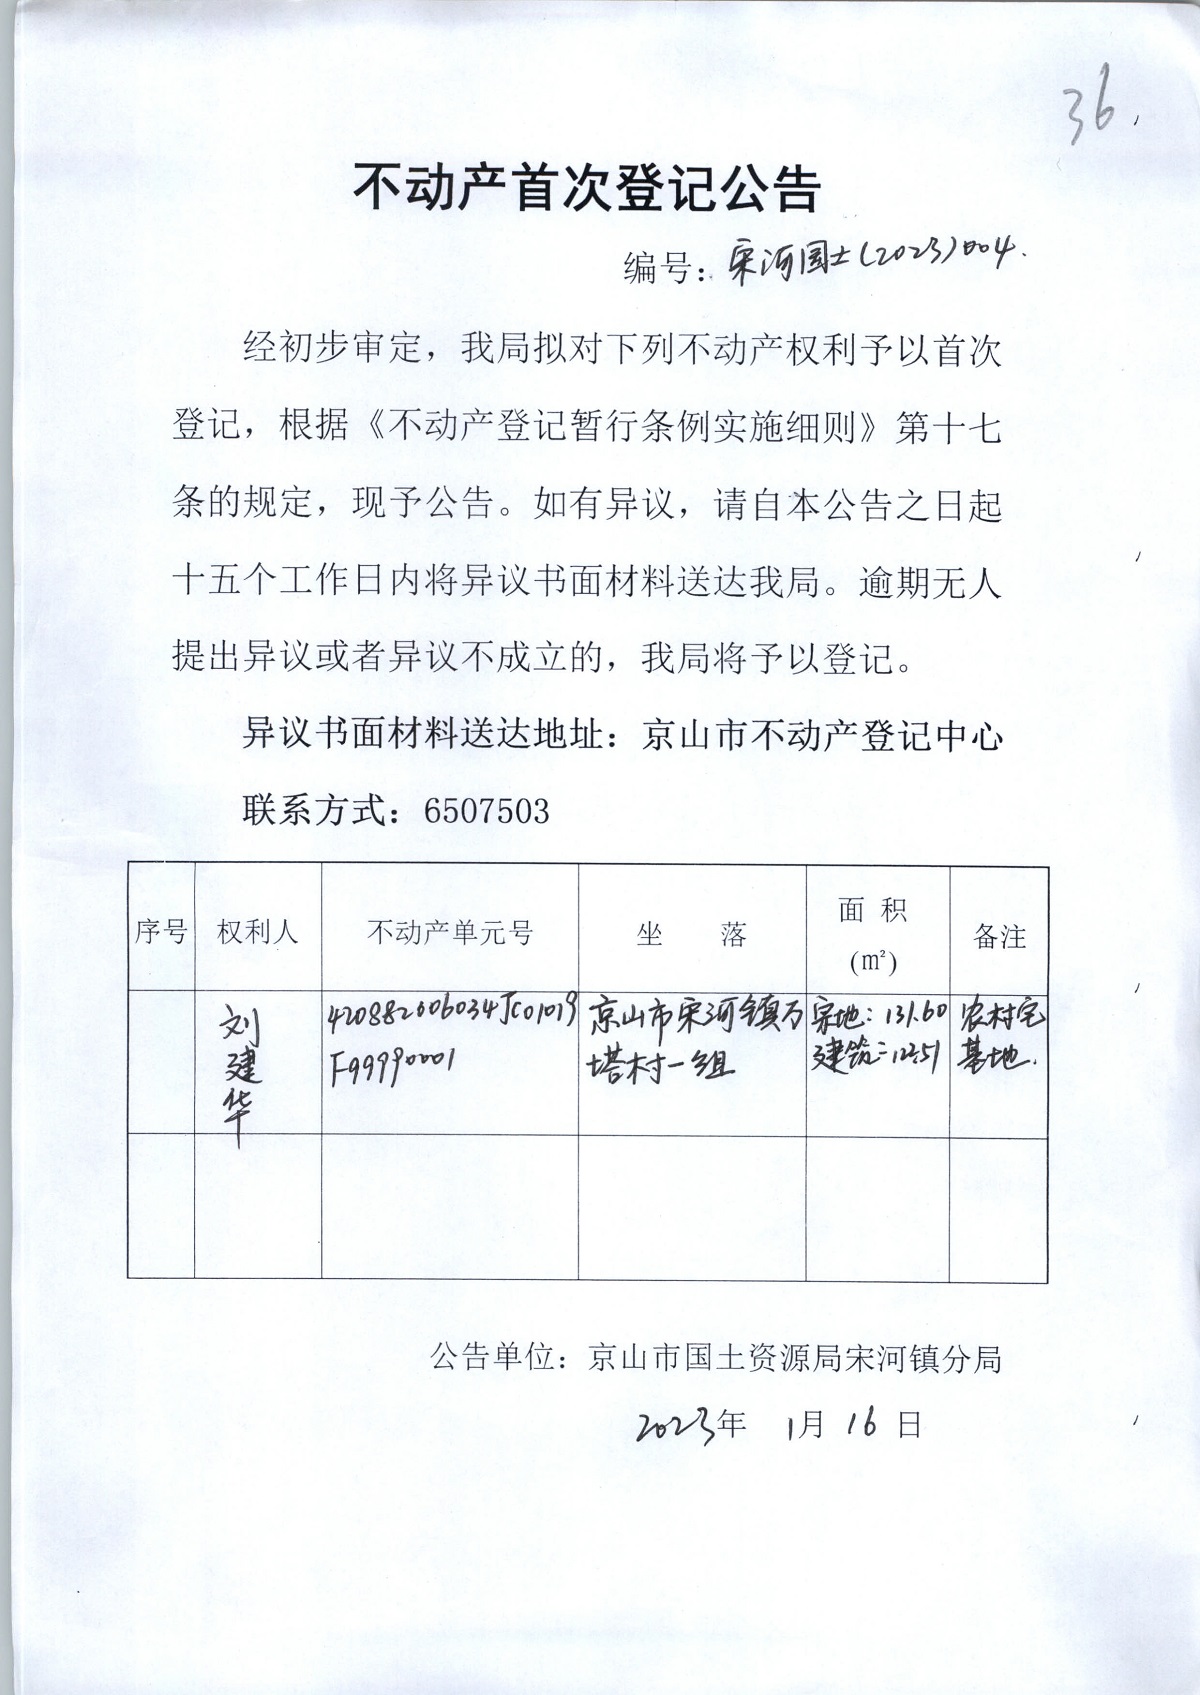 36.
不动产首次登记公告
编号：宋河国土(2023)004.
经初步审定，我局拟对下列不动产权利予以首次
登记，根据《不动产登记暂行条例实施细则》第十七
条的规定，现予公告。如有异议，请自本公告之日起
十五个工作日内将异议书面材料送达我局。逾期无人
提出异议或者异议不成立的，我局将予以登记。
异议书面材料送达地址：京山市不动产登记中心
联系方式：6507503
序号 权利人 不动产单元号 坐 落 面 积 (㎡) 备注
刘建华
420882006034JC01019
F99990001
京山市宋河镇万
塔村一组
宗地：131.60
建筑：
农村宅
基地.
公告单位：京山市国土资源局宋河镇分局
2023年 1月16日